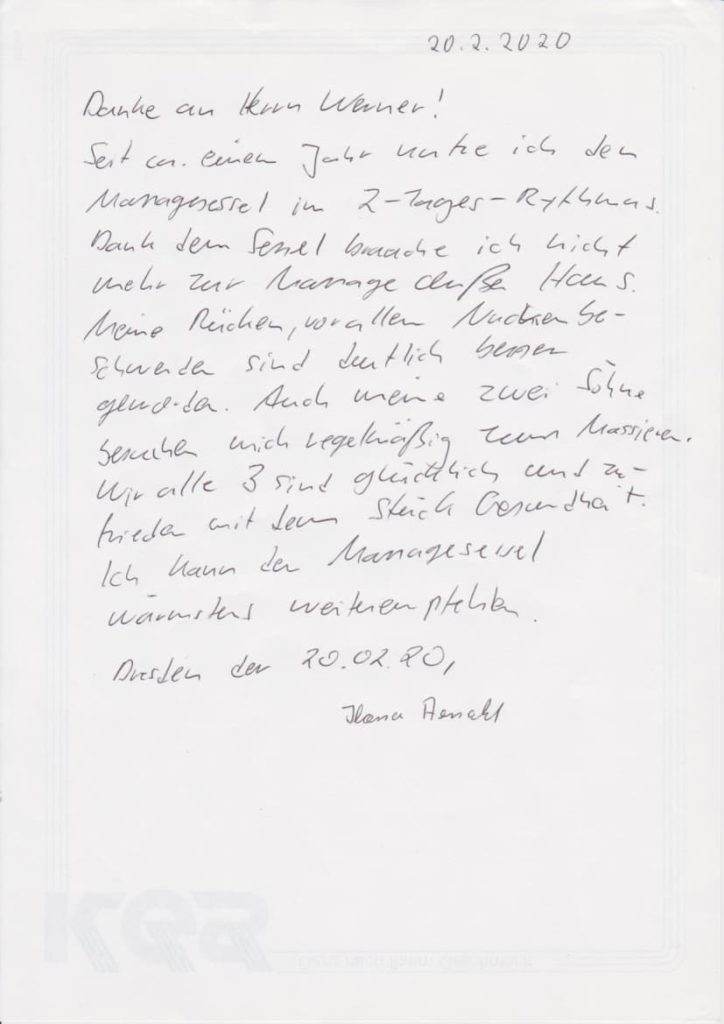 20.2.2020
Danke an Herrn Werner!
Seit ca. einem Jahr nutze ich den
Massagesessel im 2-Tages-Rythmus.
Dank dem Sessel brauche ich nicht
mehr zur Massage außer Haus.
Meine Rücken, vor allem Nackenbe-
schwerden sind deutlich besser
geworden. Auch meine zwei Söhne
besuchen mich regelmäßig zum Massieren.
Wir alle 3 sind glücklich und zu-
frieden mit dem Stück Gesundheit.
Ich kann den Massagesessel
wärmstens weiterempfehlen.
Dresden den 20.02.20,
Ilona